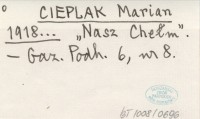 CIEPLAK Marian
1918... „Nasz Chełm".
– Gaz. Podh. 6, nr 8.
GT 1008/0696